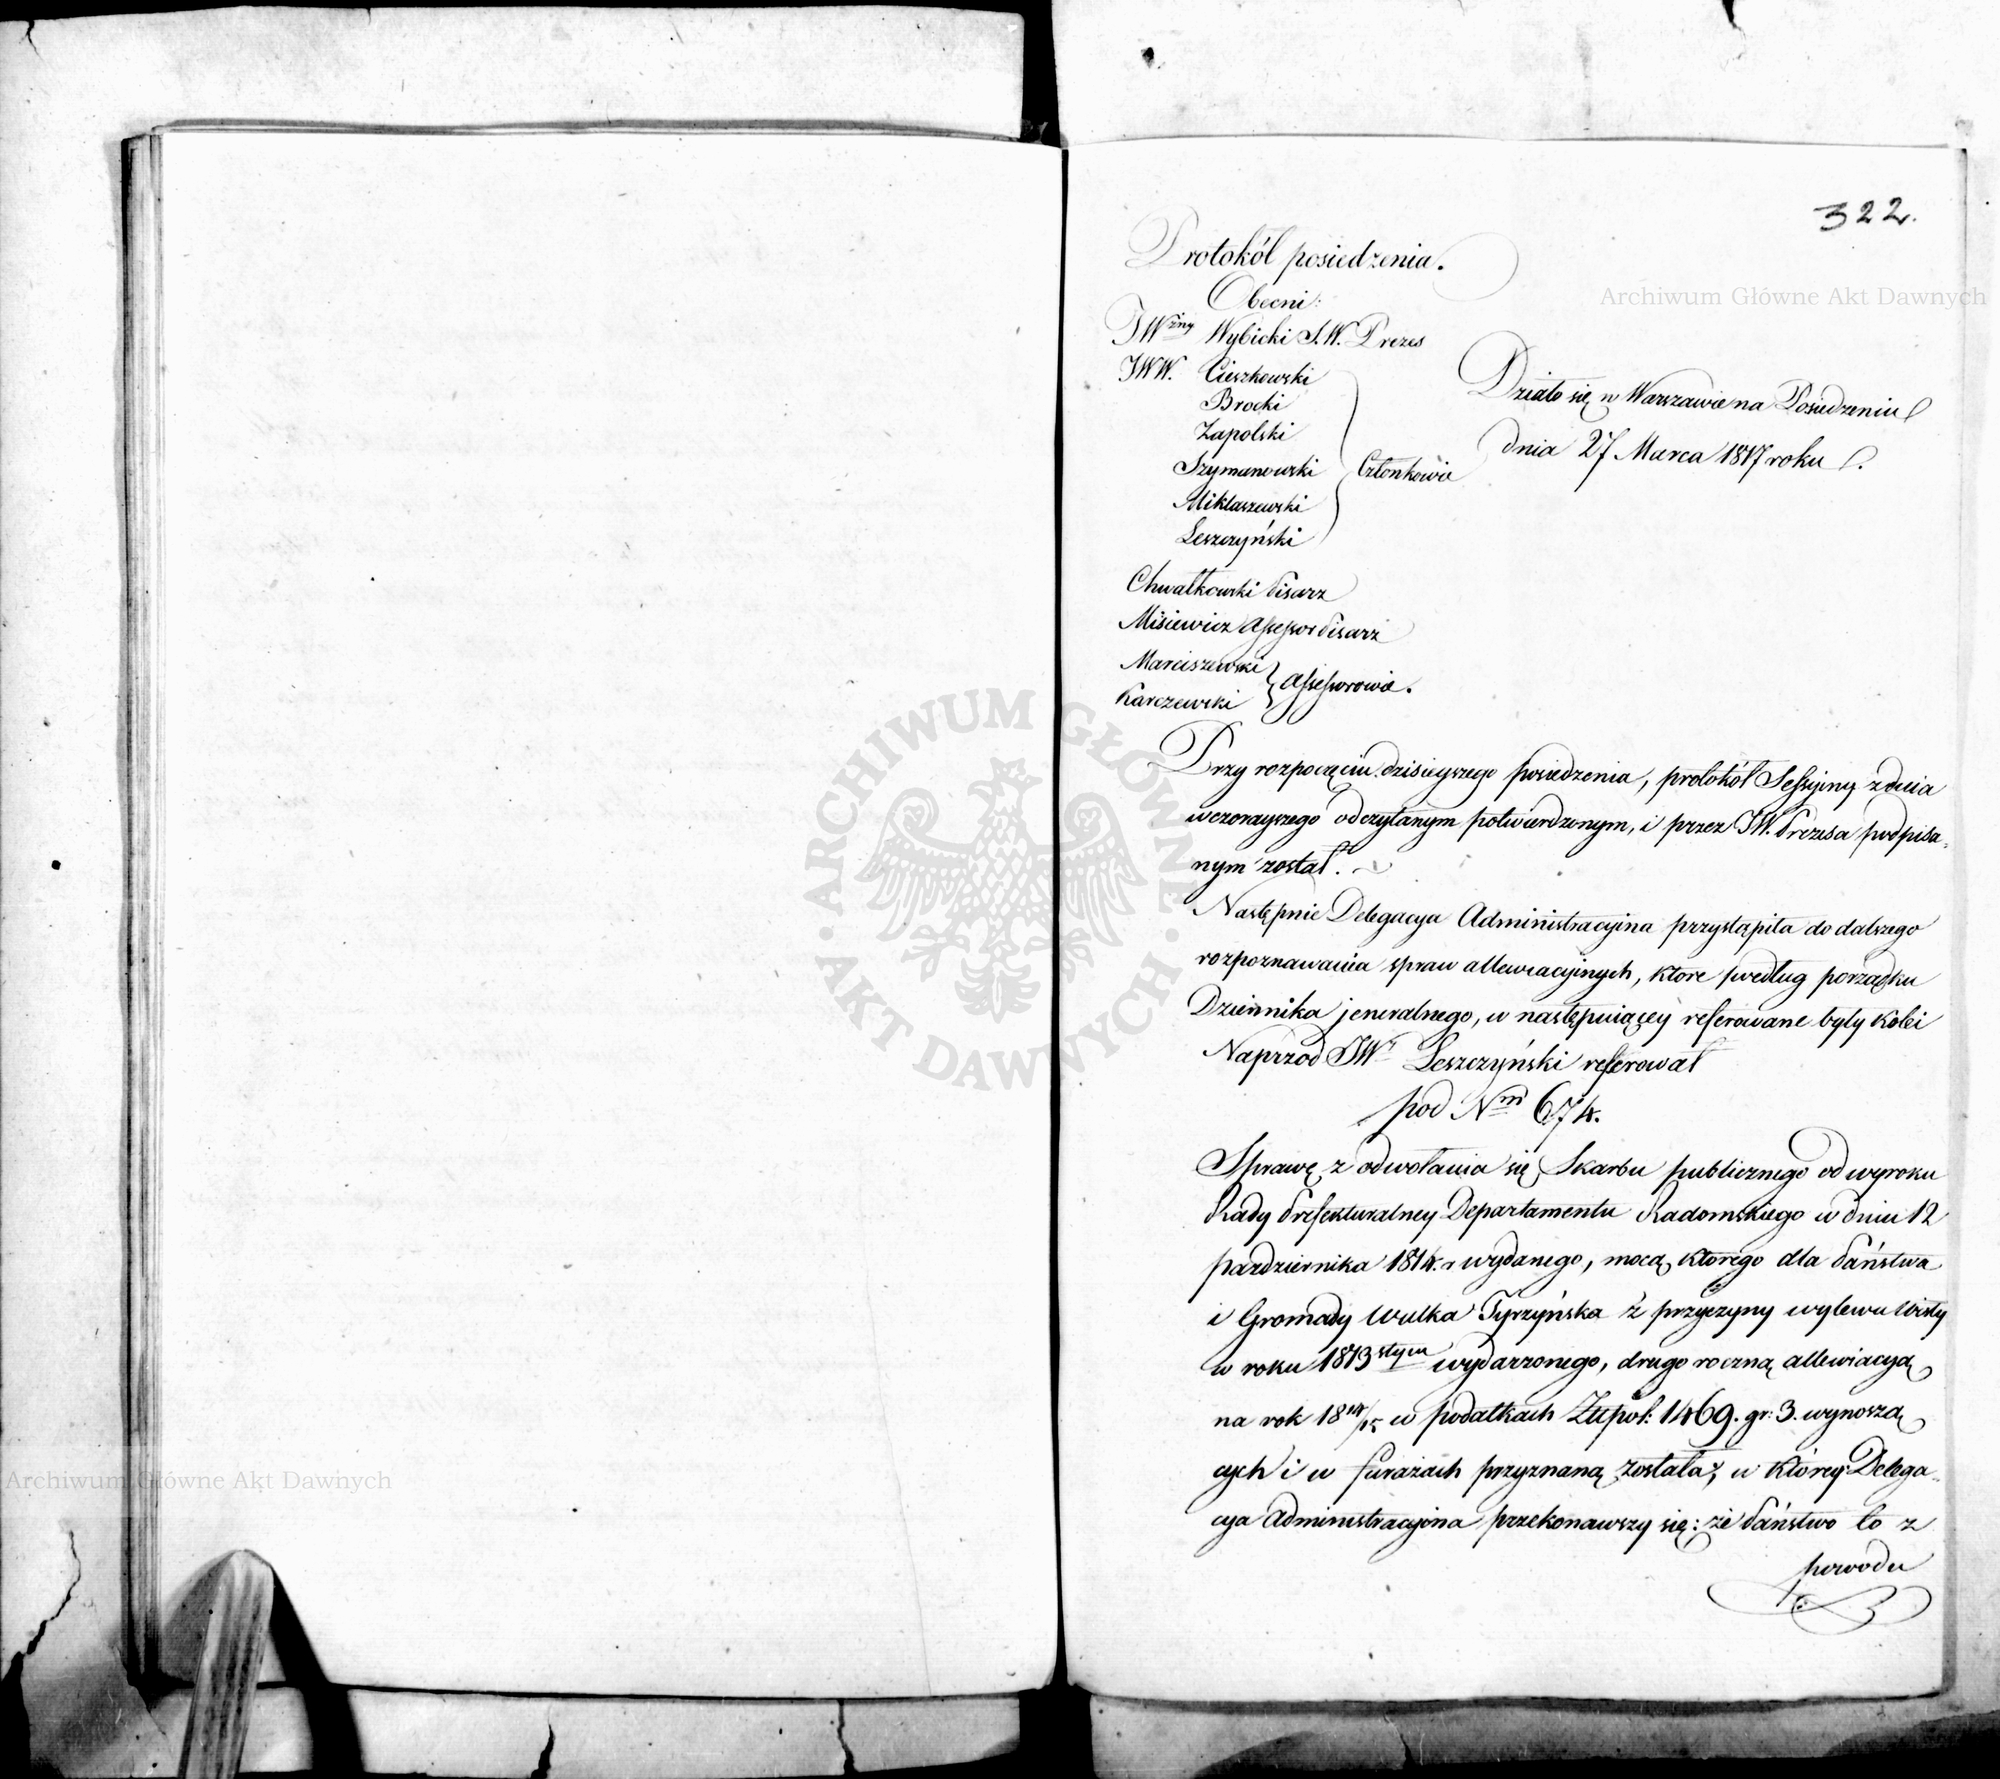 322.
Protokół posiedzenia.
Obecni:
JWżny Wybicki S.W. Prezes
JWW. Cieszkowski
Brocki
Zapolski
Szymanowski
Członkowie
Miklaszewski
Leszczyński
Działo się w Warszawie na Posiedzeniu
dnia 27 Marca 1817 roku
Chwałkowski Pisarz
Misiewicz Assessor Pisarz
Marciszewski
Karczewski
Assessorowie.
Przy rozpoczęciu dzisieyszego posiedzenia, protokół Sessyiny z dnia
wczorayszego odczytanym potwierdzonym, i przez JW. Prezesa podpisa-
nym został.
Następnie Delegacya Administracyina przystąpiła do dalszego
rozpoznawania spraw allewiacyinych, które podług porządku
Dziennika jeneralnego, w następuiącey referowane były kolei
Naprzód JWy Leszczyński referował
pod Nm 674.
Sprawę z odwołania się Skarbu publicznego od wyroku
Rady Prefekturalney Departamentu Radomskiego w dniu 12
pazdziernika 1814. r wydanego, mocą którego dla Państwa
i Gromady Wulka Tyrzyńska z przyczyny wylewu Wisły
w roku 1813stym wydarzonego, drugo roczną allewiacyą
na rok 1814/15 w podatkach Złłpol: 1469. gr: 3. wynoszą
cych i w furażach przyznaną została, w którey Delega-
cya Administracyina przekonawszy się: że Państwo to z
powodu
Archiwum Główne Akt Dawnych
Archiwum Główne Akt Dawnych
ARCHIWUM GŁÓWNE · AKT DAWNYCH ·